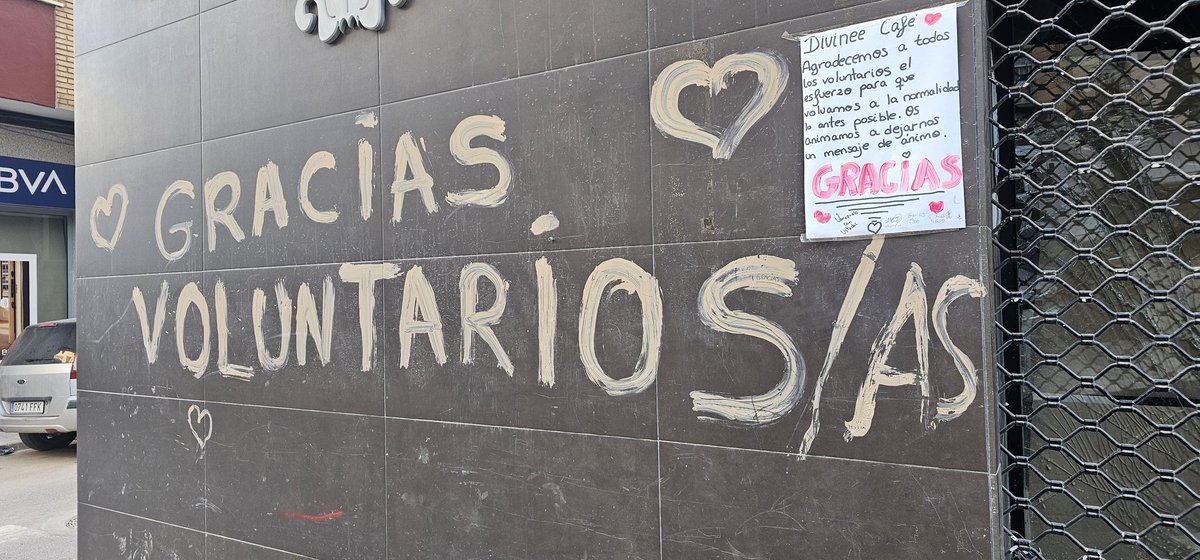 BBVA
GRACIAS
VOLUNTARIOS/AS
Divinee Café
Agradecemos a todos
los voluntarios el
esfuerzo para que
volvamos a la normalidad
lo antes posible. Os
animamos a dejarnos
un mensaje de ánimo.
GRACIAS
0741 FFK